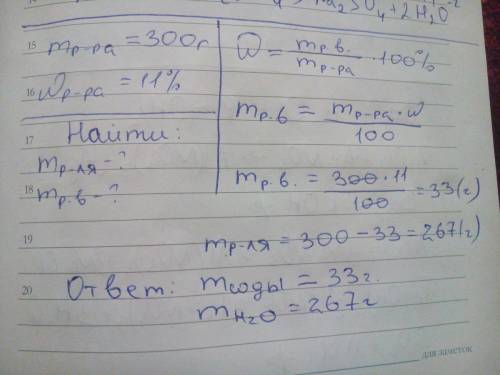 SO₄ + 2H₂O
15
mр-ра = 300г
16
ωр-ра = 11%
17
Найти:
mр-ля - ?
18
mр.в - ?
ω = mр.в. / mр-ра · 100%
mр.в = mр-ра · ω / 100
mр.в. = 300 · 11 / 100 = 33(г)
19
mр-ля = 300 - 33 = 267(г)
20
Ответ: mсоды = 33г.
mH₂O = 267г
для заметок